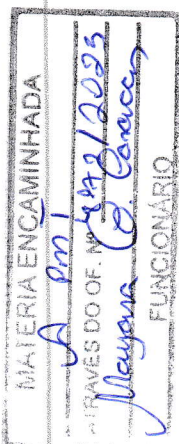 MATÉRIA ENCAMINHADA
A PMI
ATRAVÉS DO OF. Nº 272/2023
Mayara O.
FUNCIONÁRIO